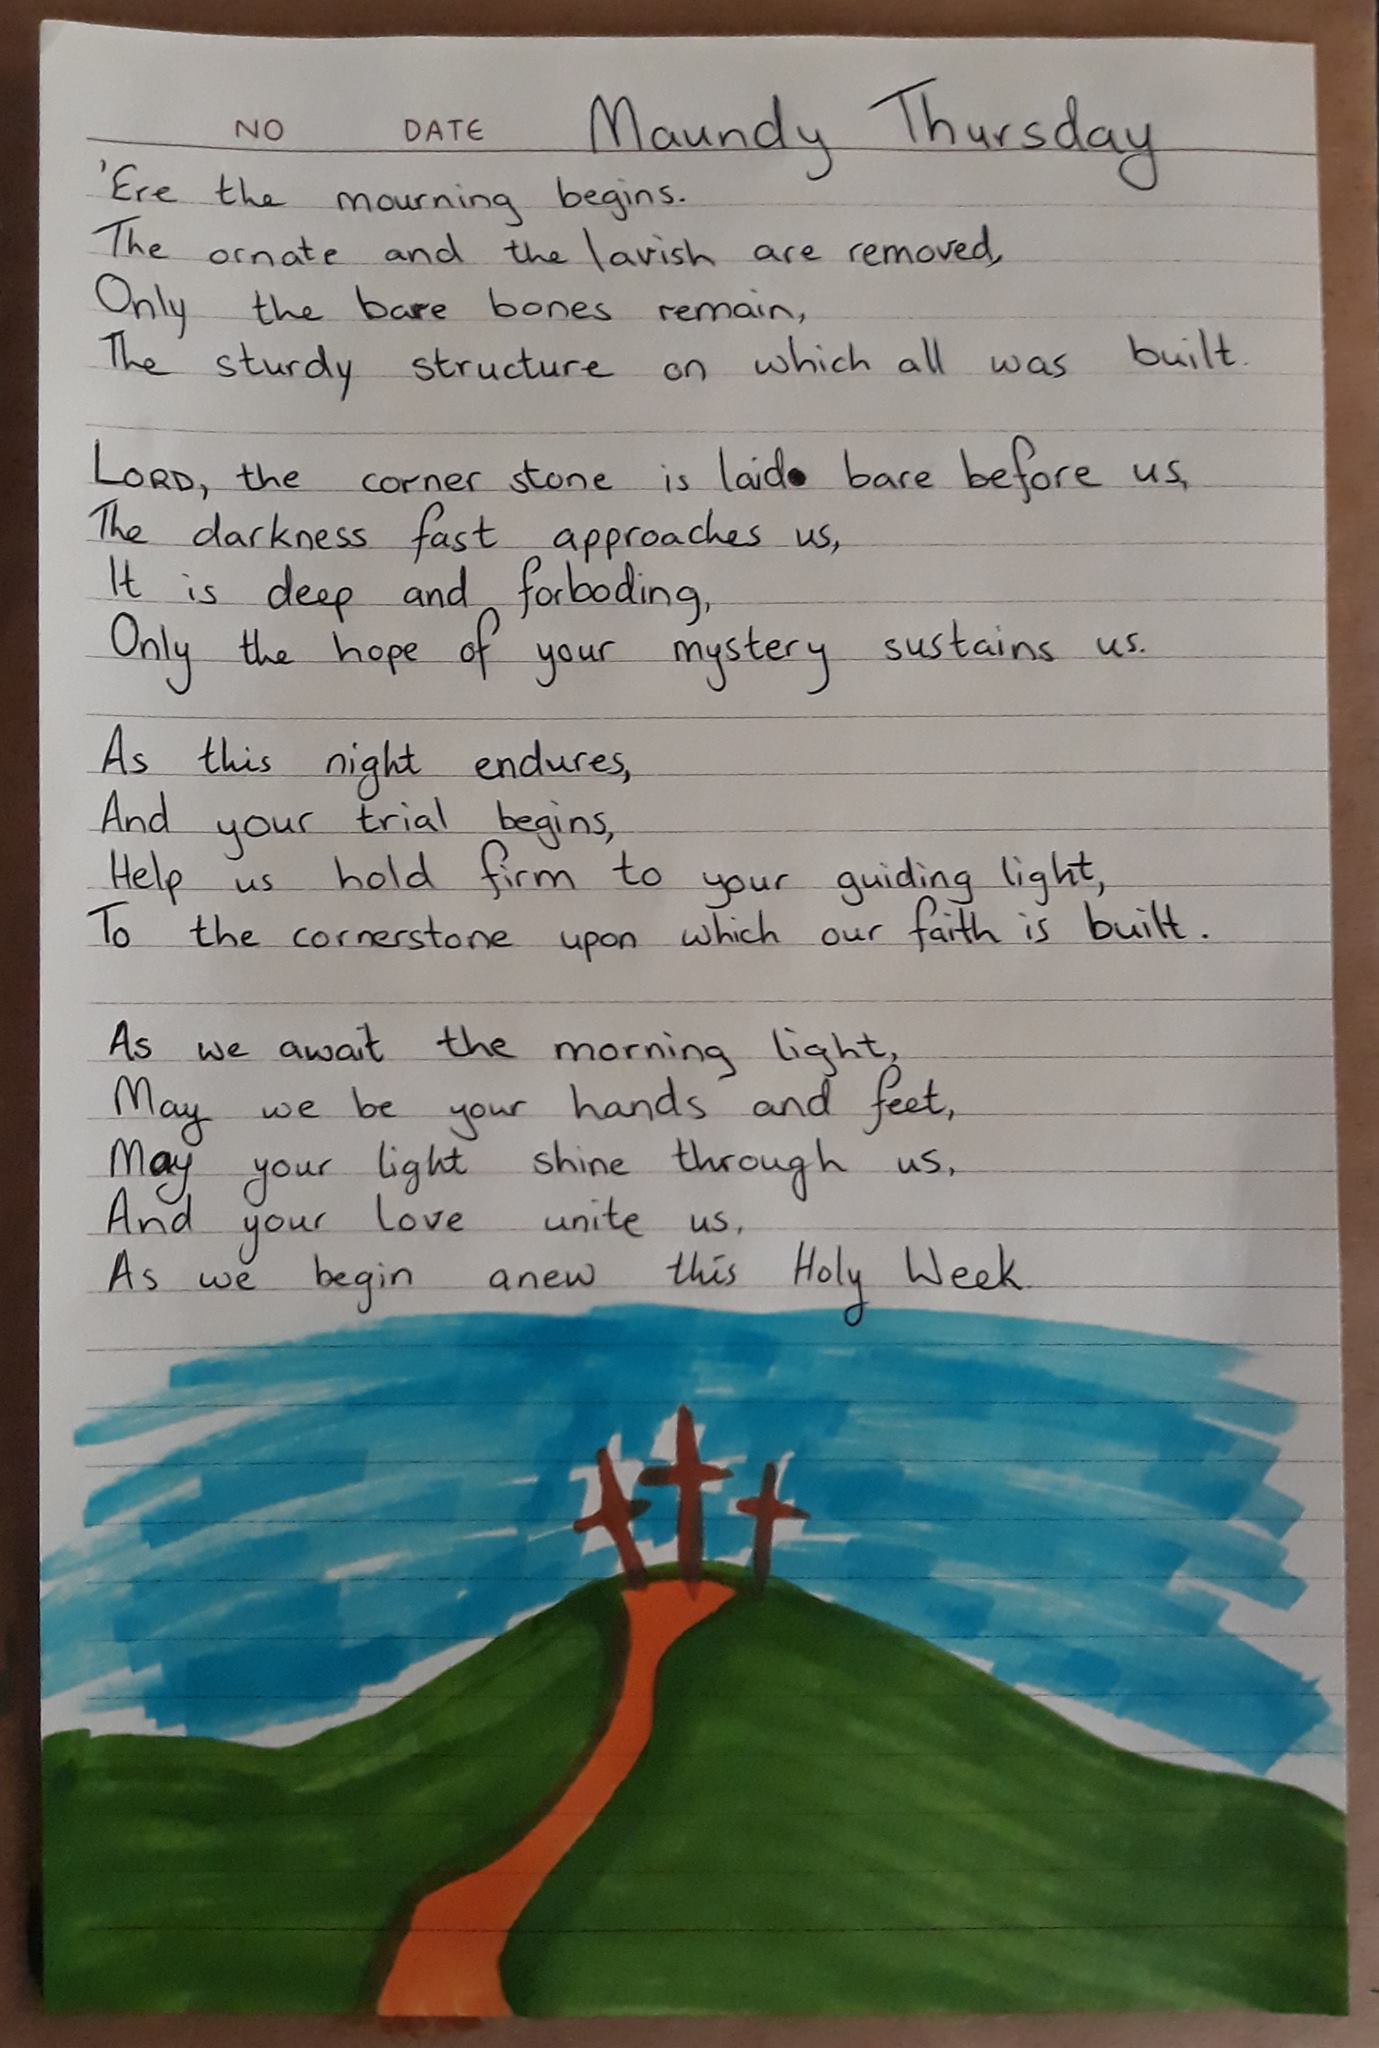 NO DATE Maundy Thursday
'Ere the mourning begins.
The ornate and the lavish are removed,
Only the bare bones remain,
The sturdy structure on which all was built.
LORD, the corner stone is laid bare before us,
The darkness fast approaches us,
It is deep and forboding,
Only the hope of your mystery sustains us.
As this night endures,
And your trial begins,
Help us hold firm to your guiding light,
To the cornerstone upon which our faith is built.
As we await the morning light,
May we be your hands and feet,
May your light shine through us,
And your love unite us,
As we begin anew this Holy Week.